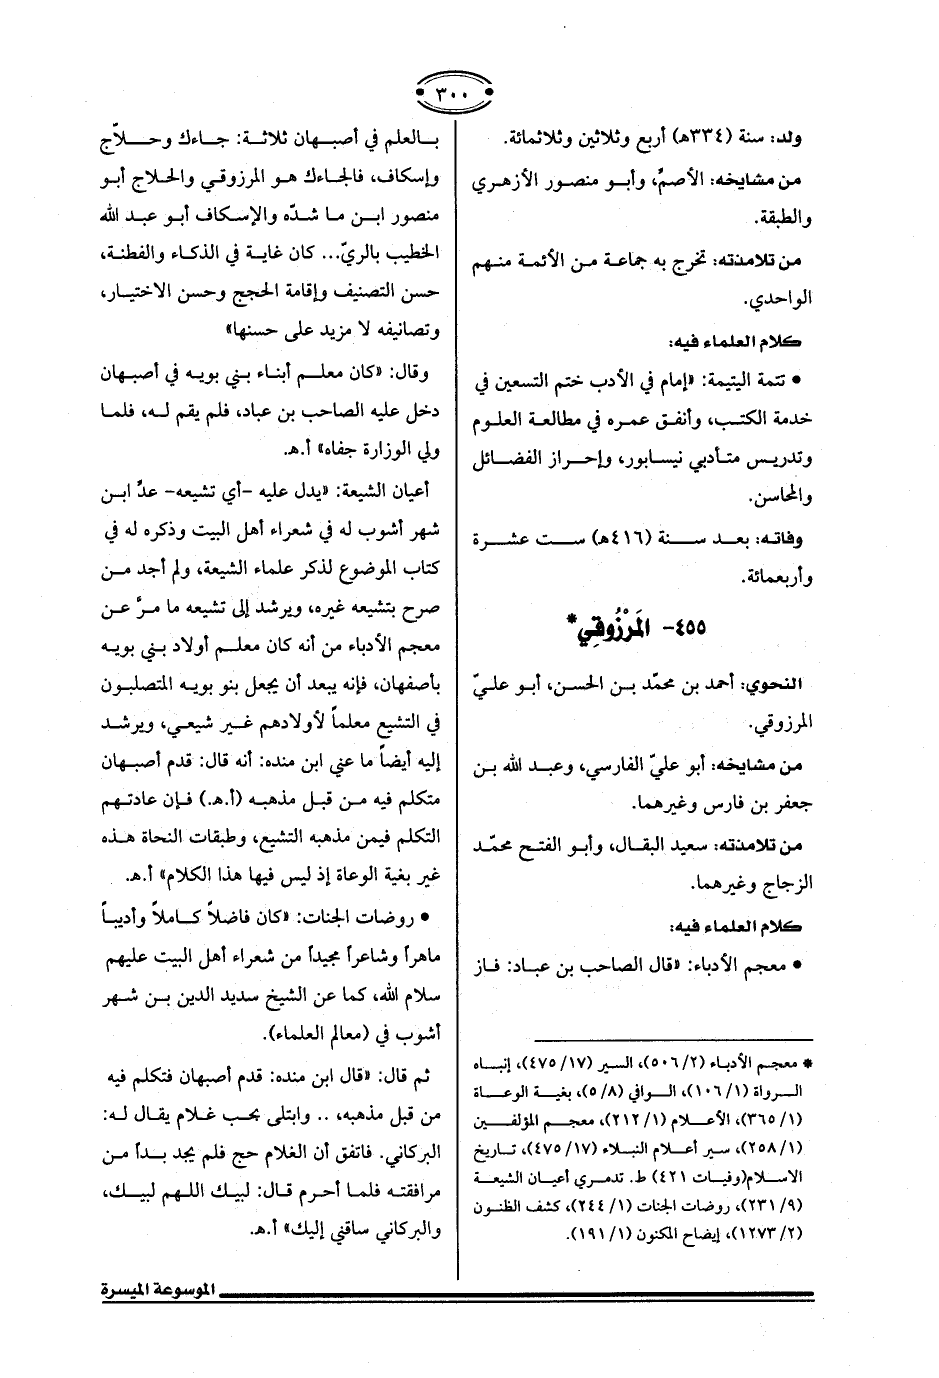 ٣٠٠
ولد: سنة (٣٣٤هـ) أربع وثلاثين وثلاثمائة.
من مشايخه: الأصمُّ، وأبو منصور الأزهري
والطبقة.
من تلامذته: تخرج به جماعة من الأئمة منهم
الواحدي.
كلام العلماء فيه:
• تتمة اليتيمة: «إمام في الأدب ختم التسعين في
خدمة الكتب، وأنفق عمره في مطالعة العلوم
وتدريس متأدبي نيسابور، وإحراز الفضائل
والمحاسن.
وفاته: بعد سنة (٤١٦هـ) ست عشرة
وأربعمائة.
٤٥٥- المَرْزُوقِي*
النحوي: أحمد بن محمّد بن الحسن، أبو عليّ
المرزوقي.
من مشايخه: أبو عليّ الفارسي، وعبد الله بن
جعفر بن فارس وغيرهما.
من تلامذته: سعيد البقال، وأبو الفتح محمّد
الزجاج وغيرهما.
كلام العلماء فيه:
• معجم الأدباء: «قال الصاحب بن عباد: فاز
* معجم الأدباء (٢/ ٥٠٦)، السير (١٧/ ٤٧٥)، إنباه
الرواة (١/ ١٠٦)، الوافي (٨/ ٥)، بغية الوعاة
(١/ ٣٦٥)، الأعلام (١/ ٢١٢)، معجم المؤلفين
(١/ ٢٥٨)، سير أعلام النبلاء (١٧/ ٤٧٥)، تاريخ
الاسلام(وفيات ٤٢١) ط. تدمري أعيان الشيعة
(٩/ ٢٣١)، روضات الجنات (١/ ٢٤٤)، كشف الظنون
(٢/ ١٢٧٣)، إيضاح المكنون (١/ ١٩١).
بالعلم في أصبهان ثلاثة: حائك وحلاّج
وإسكاف، فالحائك هو المرزوقي والحلاج أبو
منصور ابن ما شدّه والإسكاف أبو عبد الله
الخطيب بالريّ... كان غاية في الذكاء والفطنة،
حسن التصنيف وإقامة الحجج وحسن الاختيار،
وتصانيفه لا مزيد على حسنها»
وقال: «كان معلم أبناء بني بويه في أصبهان
دخل عليه الصاحب بن عباد، فلم يقم له، فلما
ولي الوزارة جفاه» أ.هـ.
أعيان الشيعة: «يدل عليه -أي تشيعه- عدُّ ابن
شهر أشوب له في شعراء أهل البيت وذكره له في
كتاب الموضوع لذكر علماء الشيعة، ولم أجد من
صرح بتشيعه غيره، ويرشد إلى تشيعه ما مرَّ عن
معجم الأدباء من أنه كان معلم أولاد بني بويه
بأصفهان، فإنه يبعد أن يجعل بنو بويه المتصلبون
في التشيع معلماً لأولادهم غير شيعي، ويرشد
إليه أيضاً ما عني ابن منده: أنه قال: قدم أصبهان
متكلم فيه من قبل مذهبه (أ.هـ.) فإن عادتهم
التكلم فيمن مذهبه التشيع، وطبقات النحاة هذه
غير بغية الوعاة إذ ليس فيها هذا الكلام» أ.هـ.
• روضات الجنات: «كان فاضلاً كاملاً وأديباً
ماهراً وشاعراً مجيداً من شعراء أهل البيت عليهم
سلام الله، كما عن الشيخ سديد الدين بن شهر
أشوب في (معالم العلماء).
ثم قال: «قال ابن منده: قدم أصبهان فتكلم فيه
من قبل مذهبه، .. وابتلى بحب غلام يقال له:
البركاني. فاتفق أن الغلام حج فلم يجد بداً من
مرافقته فلما أحرم قال: لبيك اللهم لبيك،
والبركاني ساقني إليك» أ.هـ.
الموسوعة الميسرة